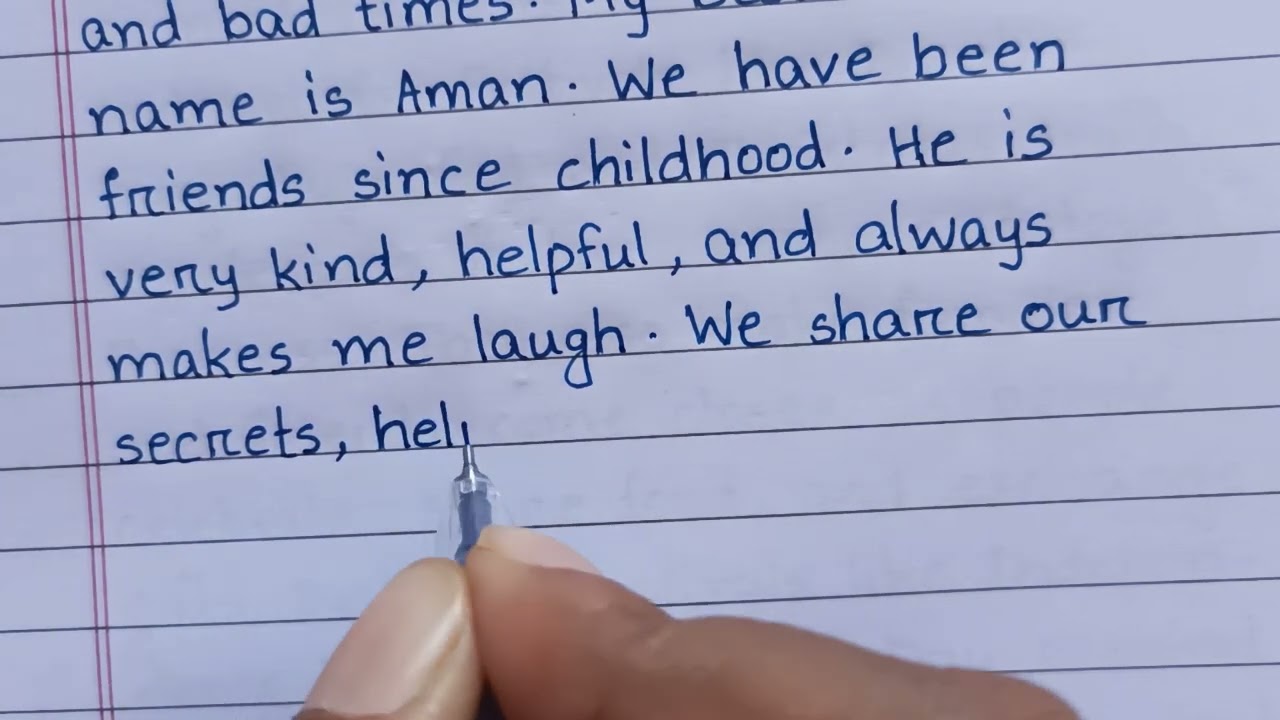 and bad times. My
name is Aman. We have been
friends since childhood. He is
very kind, helpful, and always
makes me laugh. We share our
secrets, hel